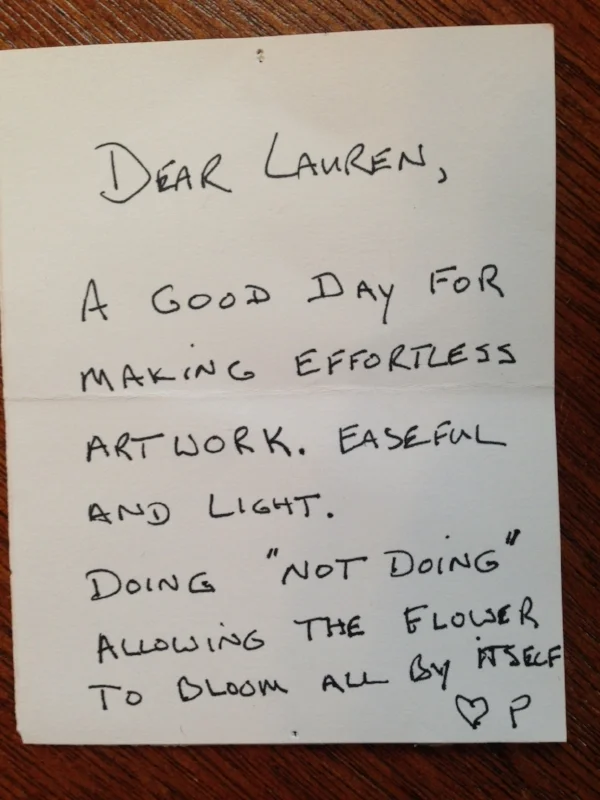 DEAR LAUREN,
A GOOD DAY FOR
MAKING EFFORTLESS
ARTWORK. EASEFUL
AND LIGHT.
DOING "NOT DOING"
ALLOWING THE FLOWER
TO BLOOM ALL BY ITSELF
♡ P